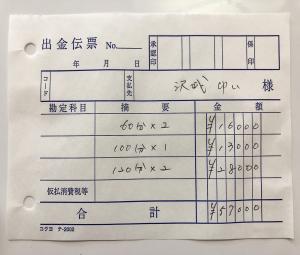 出金伝票 No.
承認印 係印
年 月 日
コード 支払先 様
勘定科目 摘要 金額
60分×2 ¥16000
100分×1 ¥13000
120分×2 ¥28000
仮払消費税等
合計 ¥57000
コクヨ テ-2002